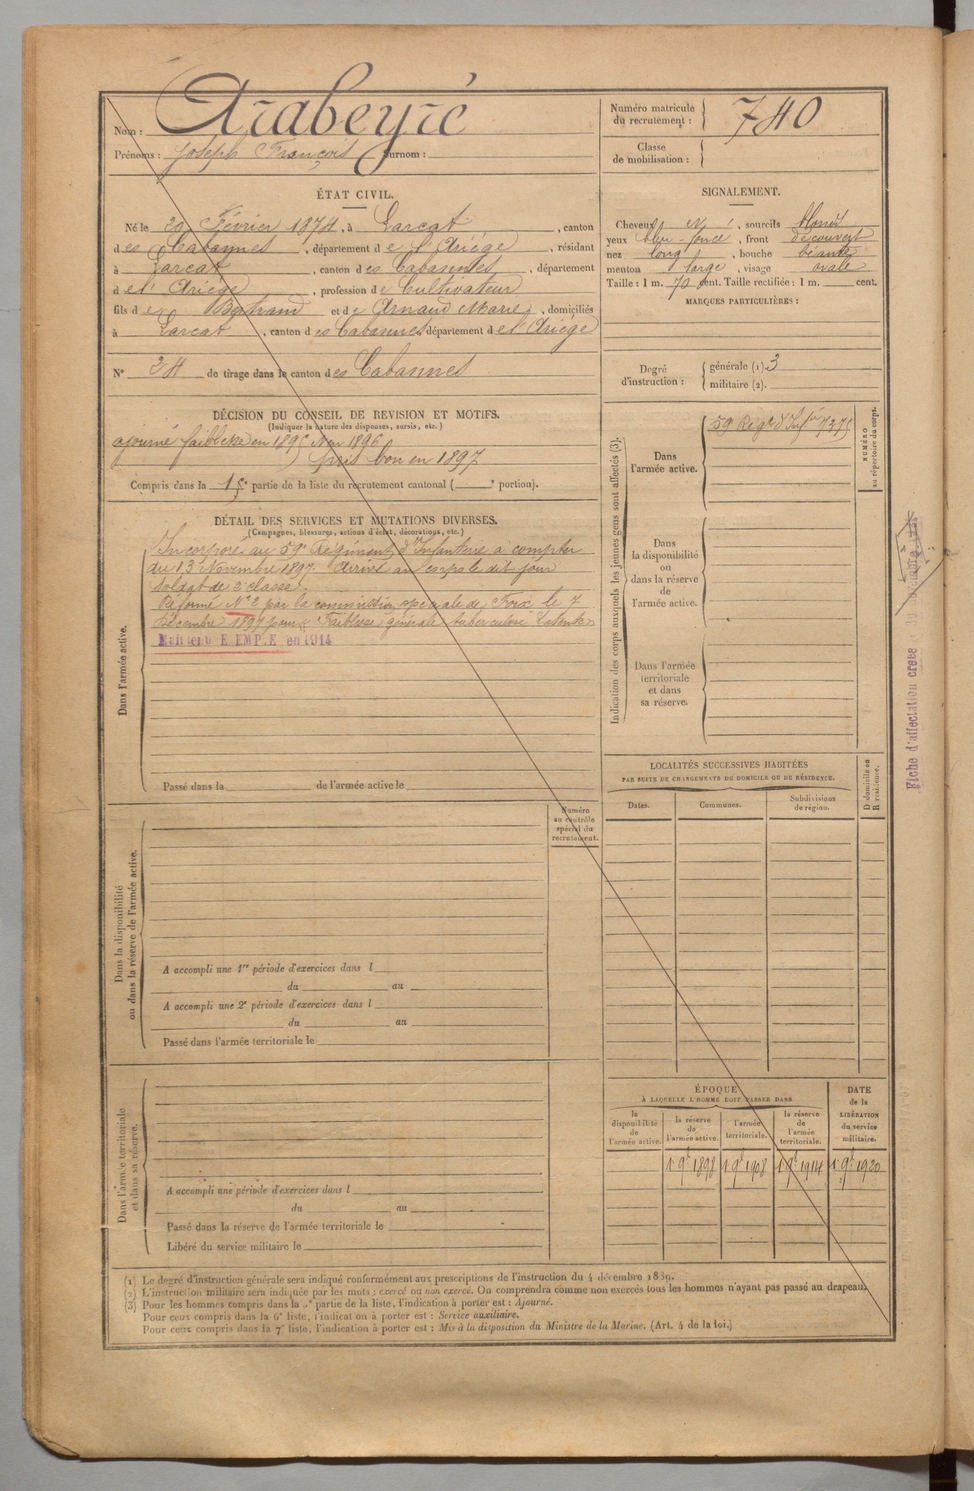 Nom : Arabeyré
Prénoms : Joseph François Surnom :
Numéro matricule du recrutement : 740
Classe de mobilisation :
ÉTAT CIVIL.
Né le 20 Février 1874, à Larcat, canton
des Cabannes, département de l'Ariége, résidant
à Larcat, canton des Cabannes, département
de l'Ariége, profession de Cultivateur
fils de Bertrand et de Arnaud Marie, domiciliés
à Larcat, canton des Cabannes département de l'Ariége
N° 24 de tirage dans le canton des Cabannes
DÉCISION DU CONSEIL DE REVISION ET MOTIFS.
(Indiquer la nature des dispenses, sursis, etc.)
ajourné faiblesse en 1895 1896
pris bon en 1897
Compris dans la 1re partie de la liste du recrutement cantonal ( e portion).
DÉTAIL DES SERVICES ET MUTATIONS DIVERSES.
(Campagnes, blessures, actions d'éclat, décorations, etc.)
Incorporé au 59e Régiment d'Infanterie à compter
du 13 Novembre 1897. Arrivé au corps le dit jour
soldat de 2e classe.
Réformé N° 2 par la commission spéciale de Foix le 7
Décembre 1897 pour Faiblesse générale tuberculose latente
Maintenu E EMP.E en 1914
Dans l'armée active.
Passé dans la de l'armée active le
Numéro au contrôle spécial du recrutement.
Dans la disponibilité ou dans la réserve de l'armée active.
A accompli une 1re période d'exercices dans l
du au
A accompli une 2e période d'exercices dans l
du au
Passé dans l'armée territoriale le
Dans l'armée territoriale et dans sa réserve.
A accompli une période d'exercices dans l
du au
Passé dans la réserve de l'armée territoriale le
Libéré du service militaire le
SIGNALEMENT.
Cheveux , sourcils blonds
yeux bleu-foncé, front découvert
nez long, bouche béante
menton large, visage ovale
Taille : 1 m. 70 cent. Taille rectifiée : 1 m. cent.
MARQUES PARTICULIÈRES :
Degré d'instruction : générale (1). 3
militaire (2).
Indication des corps auxquels les jeunes gens sont affectés (3).
NUMÉRO au répertoire du corps.
Dans l'armée active. 59e Régt d'Infie 7375
Dans la disponibilité ou dans la réserve de l'armée active.
Dans l'armée territoriale et dans sa réserve.
LOCALITÉS SUCCESSIVES HABITÉES
PAR SUITE DE CHANGEMENTS DE DOMICILE OU DE RÉSIDENCE.
Dates. Communes. Subdivisions de région. D domicile ou R résidence.
ÉPOQUE
À LAQUELLE L'HOMME DOIT PASSER DANS
la disponibilité de l'armée active. la réserve de l'armée active. l'armée territoriale. la réserve de l'armée territoriale. DATE de la LIBÉRATION du service militaire.
1 9e 1898 1 9e 1908 1 9e 1914 1 9e 1920
Fiche d'affectation créée
(1) Le degré d'instruction générale sera indiqué conformément aux prescriptions de l'instruction du 4 décembre 1889.
(2) L'instruction militaire sera indiquée par les mots : exercé ou non exercé. On comprendra comme non exercés tous les hommes n'ayant pas passé au drapeau.
(3) Pour les hommes compris dans la 5e partie de la liste, l'indication à porter est : Ajourné.
Pour ceux compris dans la 6e liste, l'indication à porter est : Service auxiliaire.
Pour ceux compris dans la 7e liste, l'indication à porter est : Mis à la disposition du Ministre de la Marine. (Art. 4 de la loi.)